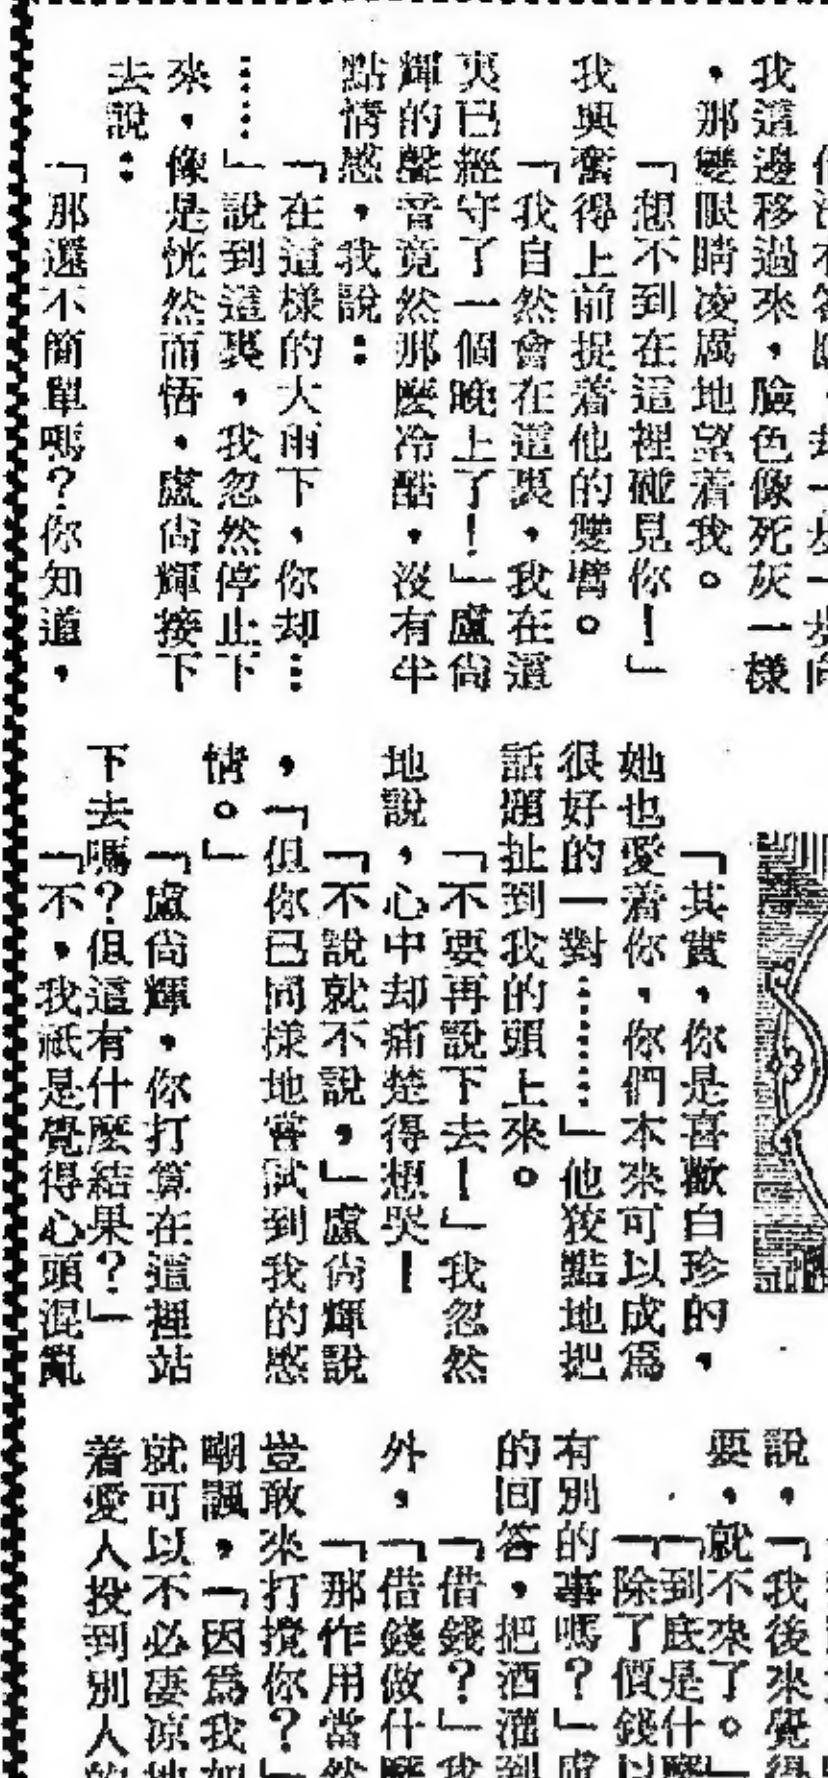 我這邊移過來，臉色像死灰一樣
，那雙眼睛凌厲地望着我。
「想不到在這裡碰見你！」
我興奮得上前捉着他的雙臂。
「我自然會在這裏，我在這
裏已經守了一個晚上了！」盧尚
輝的聲音竟然那麼冷酷，沒有半
點情感，我說：
「在這樣的大雨下，你却…
……」說到這裏，我忽然停止下
來，像是恍然而悟，盧尚輝接下
去說：
「那還不簡單嗎？你知道，
「其實，你是喜歡白珍的，
她也愛着你，你們本來可以成爲
很好的一對………」他狡黠地把
話題扯到我的頭上來。
「不要再說下去！」我忽然
地說，心中却痛楚得想哭！
「不說就不說，」盧尚輝說
，「但你已同樣地嘗試到我的感
情。」
「盧尚輝，你打算在這裡站
下去嗎？但這有什麼結果？」
「不，我祇是覺得心頭混亂
說，「我後來覺得
要，就不來了。」
「到底是什麼
「除了價錢以
有別的事嗎？」盧
的回答，把酒灌到
「借錢？」我
外，「借錢做什麼
「那作用當然
豈敢來打攪你？」
嘲諷，「因爲我如
就可以不必凄凉地
着愛人投到別人的